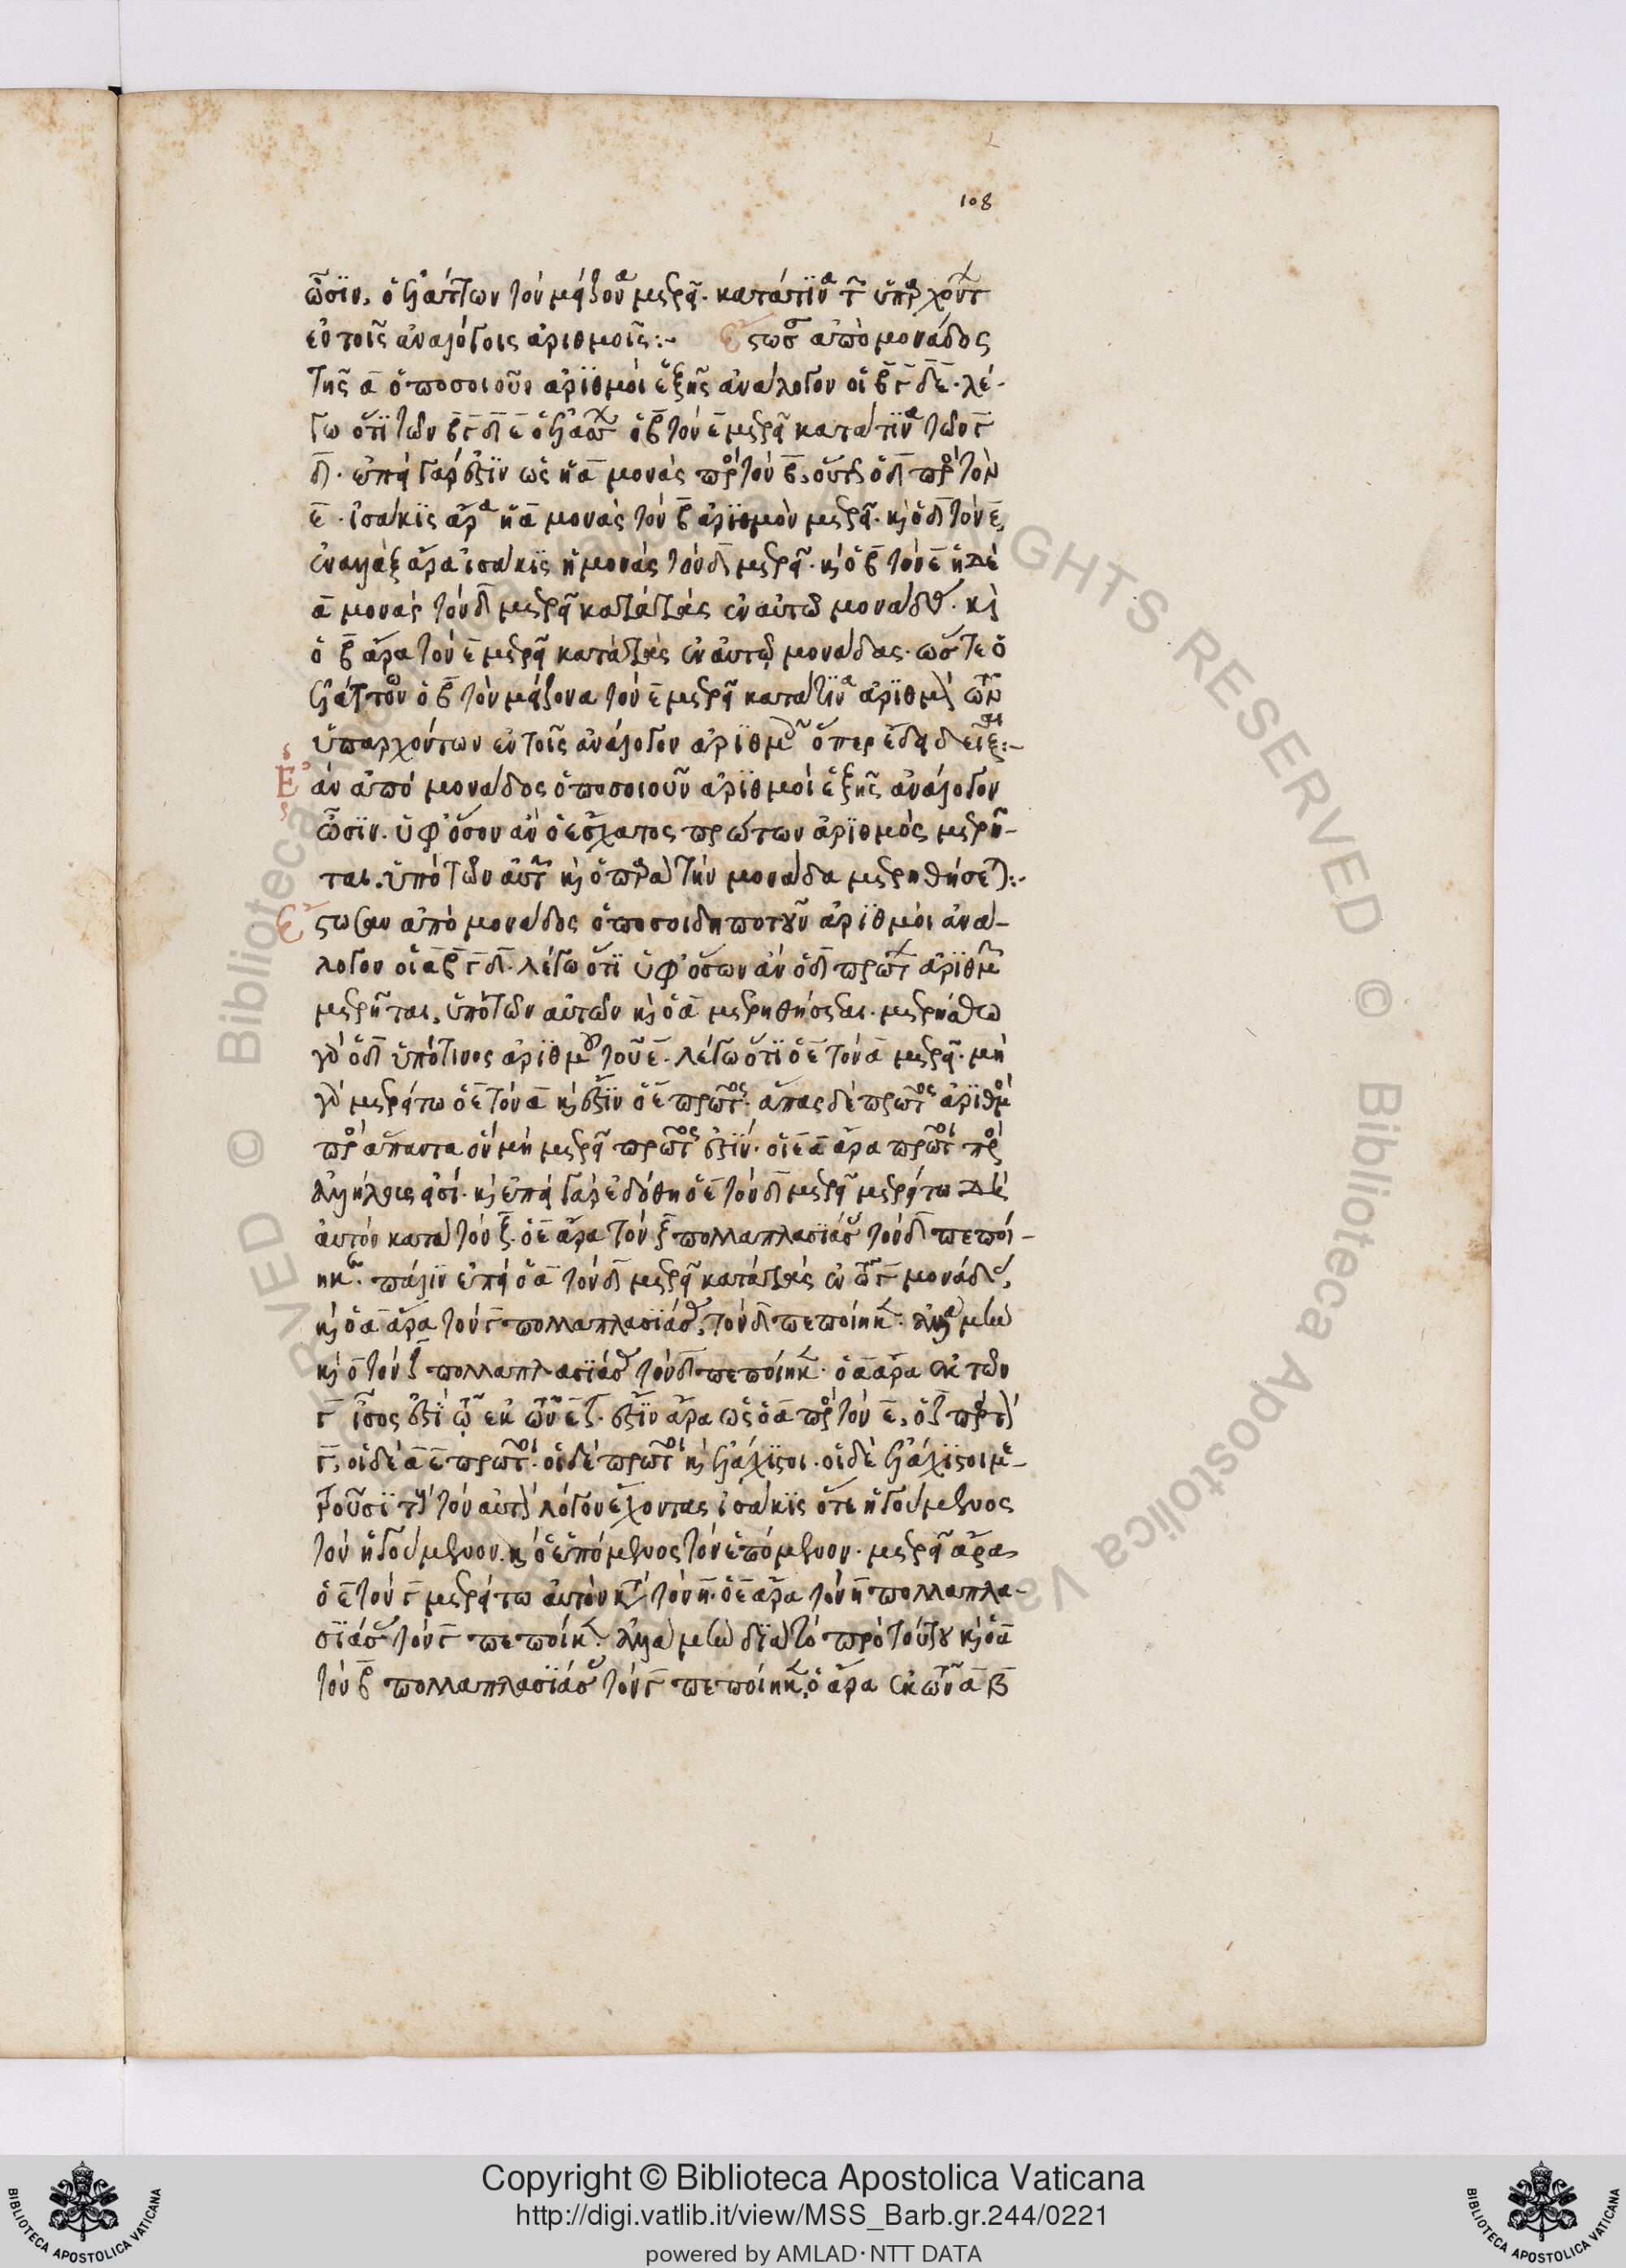 108
ὦσιν, ὁ ἐλάττων τὸν μείζονα μετρεῖ. κατά τινα τῶν ὑπαρχόντων
ἐν τοῖς ἀνάλογοις ἀριθμοῖς:- Ἔστωσαν ἀπὸ μονάδος
τῆς α ὁποσοιοῦν ἀριθμοὶ ἑξῆς ἀνάλογον οἱ β γ δ ε. λέ-
γω ὅτι τῶν β γ δ ε ὁ ἐλάττων ὁ β τὸν ε μετρεῖ κατά τινα τῶν γ
δ. ἐπεὶ γάρ ἐστιν ὡς ἡ α μονὰς πρὸς τὸν β, οὕτως ὁ δ πρὸς τὸν
ε. ἰσάκις ἄρα ἡ α μονὰς τὸν β ἀριθμὸν μετρεῖ. καὶ ὁ δ τὸν ε,
ἐναλλὰξ ἄρα ἰσάκις ἡ μονὰς τὸν δ μετρεῖ. καὶ ὁ β τὸν ε ἡ δὲ
α μονὰς τὸν δ μετρεῖ κατὰ τὰς ἐν αὐτῷ μονάδας. καὶ
ὁ β ἄρα τὸν ε μετρεῖ κατὰ τὰς ἐν αὐτῷ μονάδας. ὥστε ὁ
ἐλάττον ὁ β τὸν μείζονα τὸν ε μετρεῖ κατά τινα ἀριθμὸν τῶν
ὑπαρχόντων ἐν τοῖς ἀνάλογον ἀριθμοῖς ὅπερ ἔδει δεῖξαι:-
Ἐὰν ἀπὸ μονάδος ὁποσοιοῦν ἀριθμοὶ ἑξῆς ἀνάλογον
ὦσιν. ὑφ' ὅσον ἂν ὁ ἔσχατος πρώτων ἀριθμὸς μετρῆ-
ται. ὑπὸ τῶν αὐτῶν καὶ ὁ παρὰ τὴν μονάδα μετρηθήσεται:-
Ἔστωσαν ἀπὸ μονάδος ὁποσοιδηποτοῦν ἀριθμοὶ ἀνά-
λογον οἱ α β γ δ. λέγω ὅτι ὑφ' ὅσων ἂν ὁ δ πρώτων ἀριθμῶν
μετρῆται, ὑπὸ τῶν αὐτῶν καὶ ὁ α μετρηθήσεται. μετρείσθω
γὰρ ὁ δ ὑπό τινος ἀριθμοῦ τοῦ ε. λέγω ὅτι ὁ ε τὸν α μετρεῖ. μὴ
γὰρ μετρείτω ὁ ε τὸν α καὶ ἐστιν ὁ ε πρῶτος. ἅπας δὲ πρῶτος ἀριθμὸς
πρὸς ἅπαντα ὃν μὴ μετρεῖ πρῶτός ἐστιν. οἱ ε α ἄρα πρῶτοι πρὸς
ἀλλήλους εἰσί. καὶ ἐπεὶ γὰρ ἐδόθη ὁ ε τὸν δ μετρεῖ μετρείτω δὲ
αὐτὸν κατὰ τὸν ζ. ὁ ε ἄρα τὸν ζ πολλαπλασιάσας τὸν δ πεποί-
ηκεν. πάλιν ἐπεὶ ὁ α τὸν δ μετρεῖ κατὰ τὰς ἐν τῷ γ μονάδας,
καὶ ὁ α ἄρα τὸν γ πολλαπλασιάσας, τὸν δ πεποίηκεν. ἀλλὰ μὴν
καὶ ὁ τὸν ζ πολλαπλασιάσας τὸν δ πεποίηκεν. ὁ ἄρα ἐκ τῶν
γ ἴσος ἐστὶ τῷ ἐκ τῶν ε ζ. ἔστιν ἄρα ὡς ὁ α πρὸς τὸν ε, ὁ ζ πρὸς τὸν
γ, οἱ δὲ α ε πρῶτοι. οἱ δὲ πρῶτοι καὶ ἐλάχιστοι. οἱ δὲ ἐλάχιστοι με-
τροῦσι τοὺς τὸν αὐτὸν λόγον ἔχοντας ἰσάκις ὅτε ἡγούμενος
τὸν ἡγούμενον. καὶ ὁ ἑπόμενος τὸν ἑπόμενον. μετρεῖ ἄρα
ὁ ε τὸν γ μετρείτω αὐτὸν κατὰ τὸν η. ὁ ε ἄρα τὸν η πολλαπλα-
σιάσας τὸν γ πεποίηκεν. ἀλλὰ μὴν διὰ τὸ πρὸ τούτου καὶ ὁ α
τὸν β πολλαπλασιάσας τὸν γ πεποίηκεν, ὁ ἄρα ἐκ τῶν α β
Copyright © Biblioteca Apostolica Vaticana
http://digi.vatlib.it/view/MSS_Barb.gr.244/0221
powered by AMLAD·NTT DATA